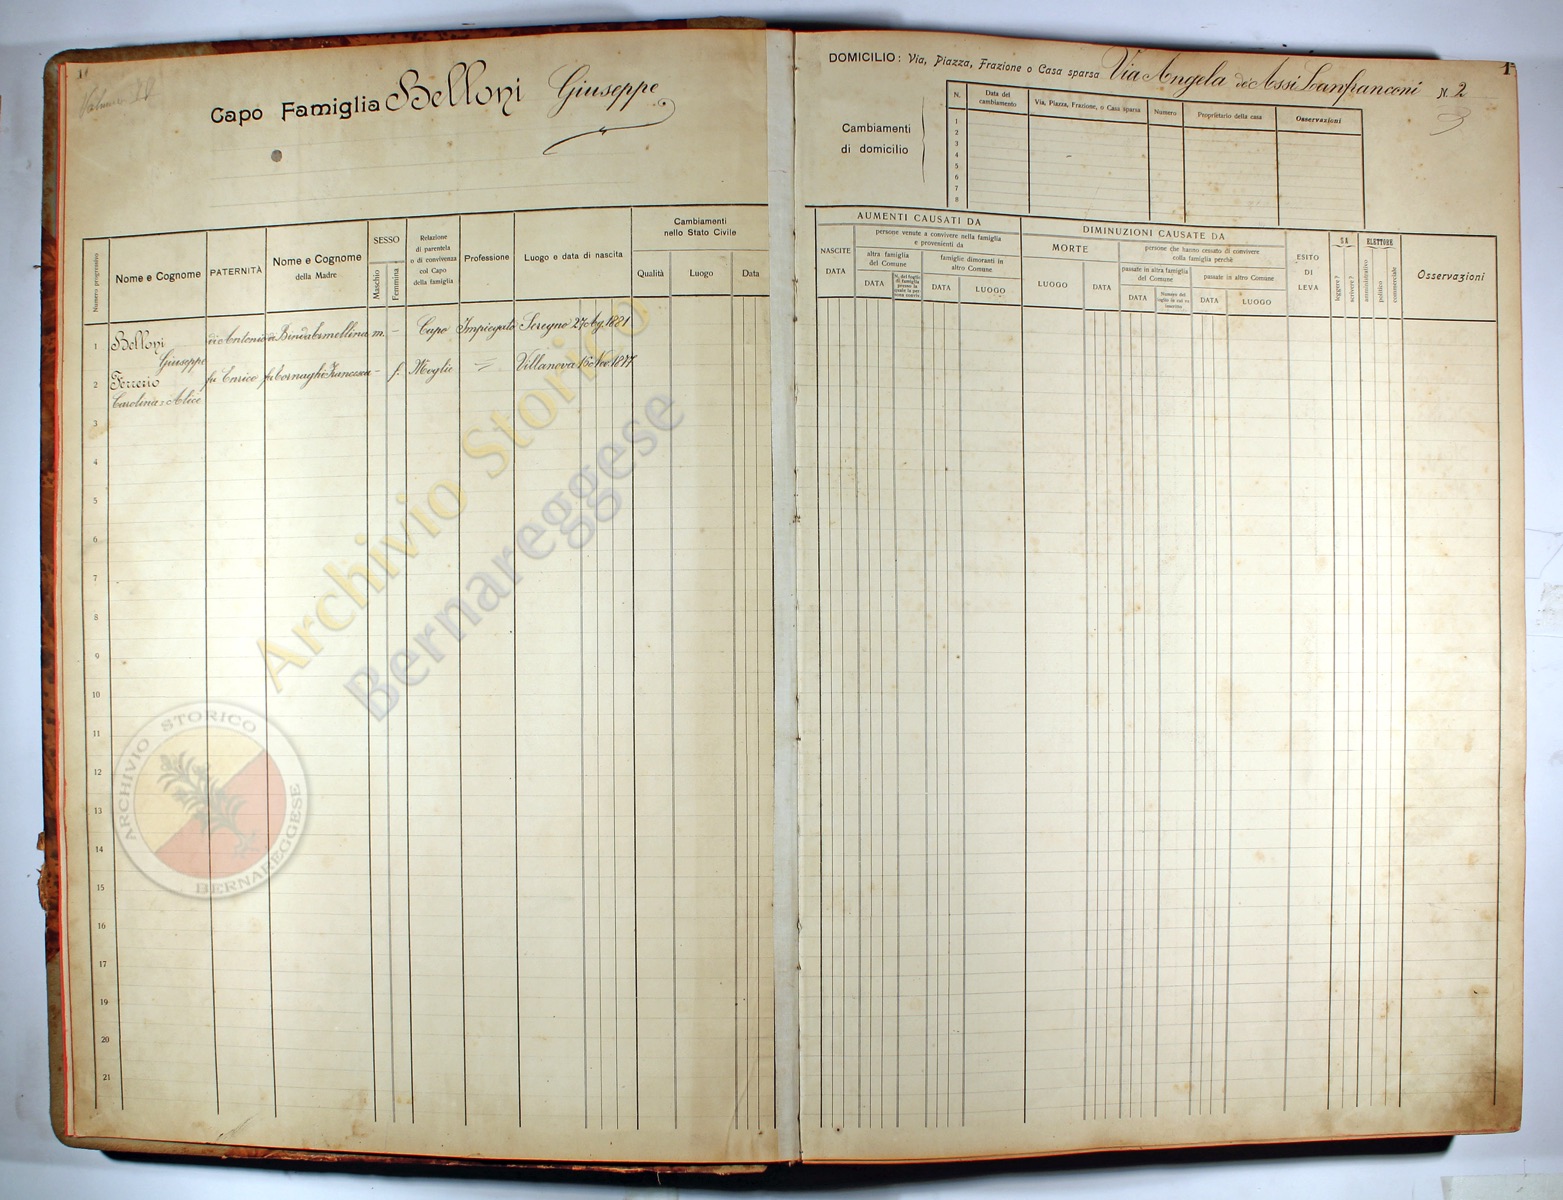 Capo Famiglia Belloni Giuseppe
Numero progressivo
Nome e Cognome
PATERNITÀ
Nome e Cognome
della Madre
SESSO
Maschio
Femmina
Relazione
di parentela
o di convivenza
col Capo
della famiglia
Professione
Luogo e data di nascita
Cambiamenti
nello Stato Civile
Qualità
Luogo
Data
1 Belloni di Antonio m. - Capo Impiegato Seregno 27 Ag. 1881
Giuseppe
2 Ferrerio fu Enrico fu Cornaghi Francesca - f. Moglie = Villanova 15 Nov. 1877
Carolina = Alice
3
4
5
6
7
8
9
10
11
12
13
14
15
16
17
18
19
20
21
Archivio Storico
Bernareggese
ARCHIVIO STORICO
BERNAREGGESE
1
DOMICILIO: Via, Piazza, Frazione o Casa sparsa Via Angela de' Assi Lanfranconi N 2
Cambiamenti
di domicilio
N.
Data del
cambiamento
Via, Piazza, Frazione, o Casa sparsa
Numero
Proprietario della casa
Osservazioni
1
2
3
4
5
6
7
8
NASCITE
DATA
AUMENTI CAUSATI DA
persone venute a convivere nella famiglia
e provenienti da
altra famiglia
del Comune
DATA
N. del foglio
di famiglia
presso la
quale la per
sona conviv
famiglie dimoranti in
altro Comune
DATA
LUOGO
DIMINUZIONI CAUSATE DA
MORTE
LUOGO
DATA
persone che hanno cessato di convivere
colla famiglia perchè
passate in altra famiglia
del Comune
DATA
Numero del
foglio in cui va
inscritto
passate in altro Comune
DATA
LUOGO
ESITO
DI
LEVA
SA
leggere?
scrivere?
ELETTORE
amministrativo
politico
commerciale
Osservazioni